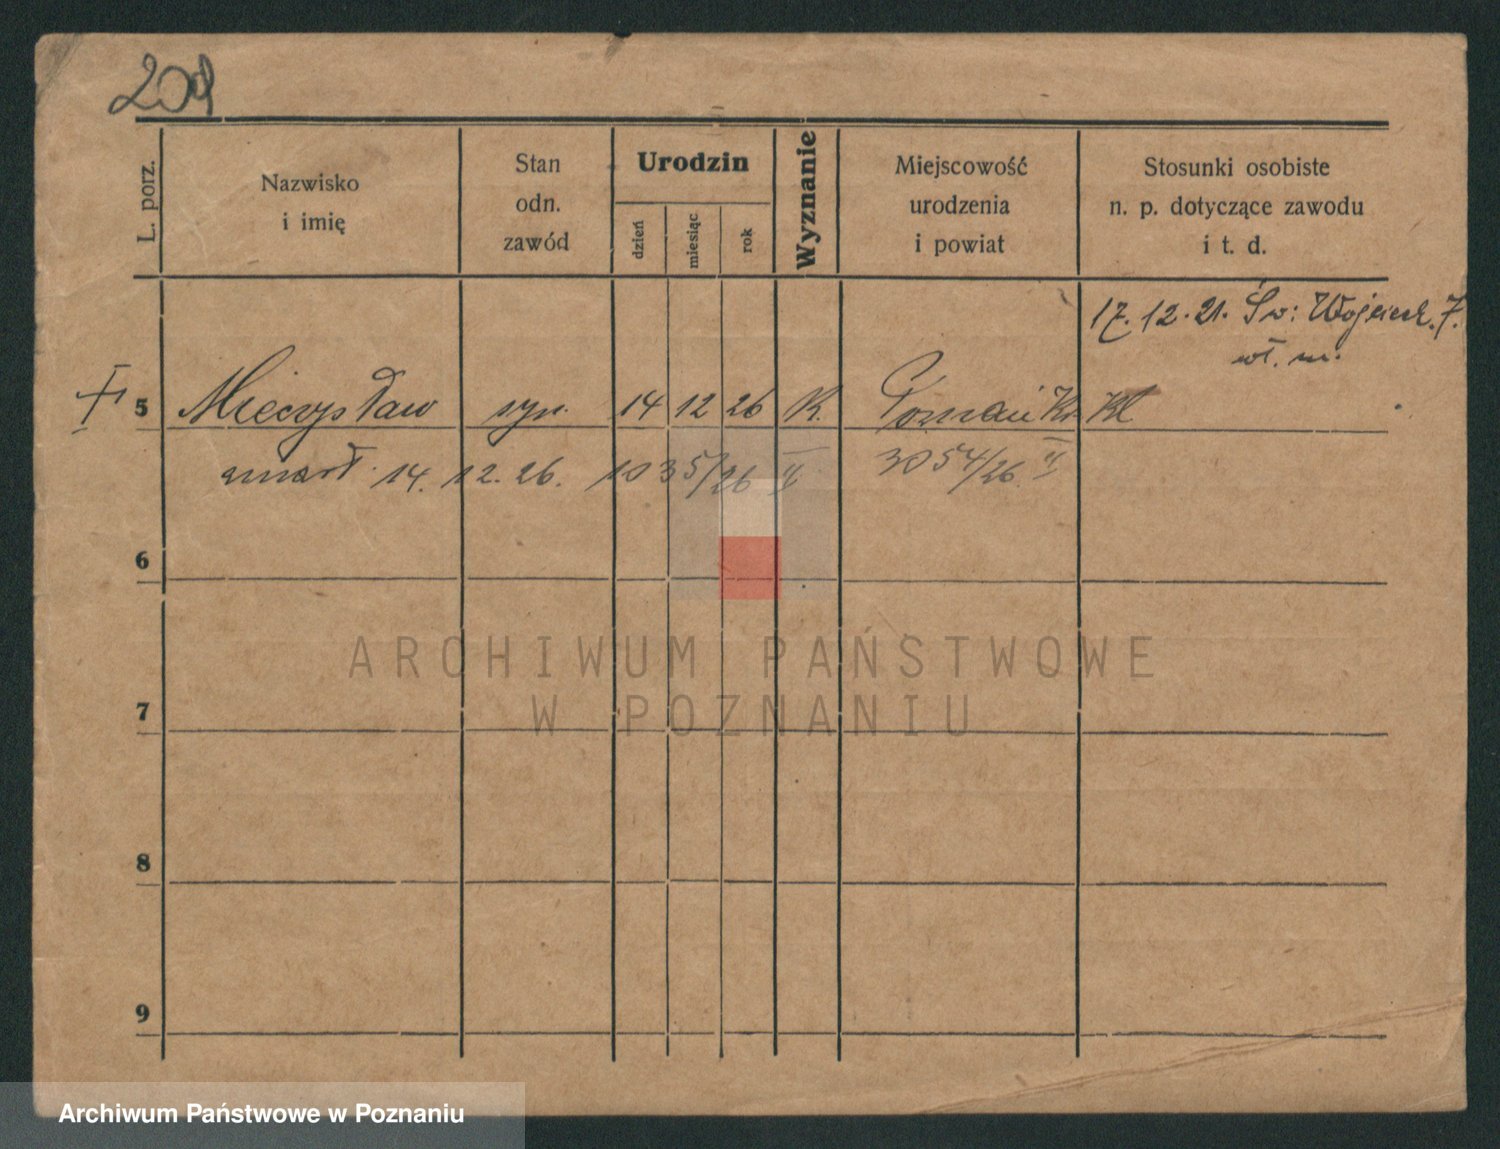 209
L. porz.
Nazwisko
i imię
Stan
odn.
zawód
Urodzin
dzień
miesiąc
rok
Wyznanie
Miejscowość
urodzenia
i powiat
Stosunki osobiste
n. p. dotyczące zawodu
i t. d.
17. 12. 21. Św: Wojciech. 7.
wł. m.
5 Mieczysław syn. 14 12 26 K. Poznań Kl
zmarł. 14. 12. 26. 1035/26 II 3054/26 II
6
ARCHIWUM PAŃSTWOWE
W POZNANIU
7
8
9
Archiwum Państwowe w Poznaniu